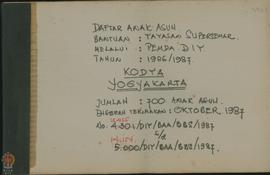 DAFTAR ANAK ASUH
BANTUAN : YAYASAN SUPERSEMAR
MELALUI : PEMDA DIY
TAHUN : 1986/1987.
KODYA
YOGYAKARTA
JUMLAH : 700 ANAK ASUH.
TERIMAKAN : OKTOBER 1987
No. 4.301/DIY/BAA/085/1987
s/d
5.000/DIY/BAA/085/1987.